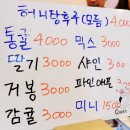 허니탕후루(모듬) 4000
통귤 4000 믹스 3000
딸기 3000 샤인 3000
거봉 3000 파인애플 2000
감귤 3000 미니 1500